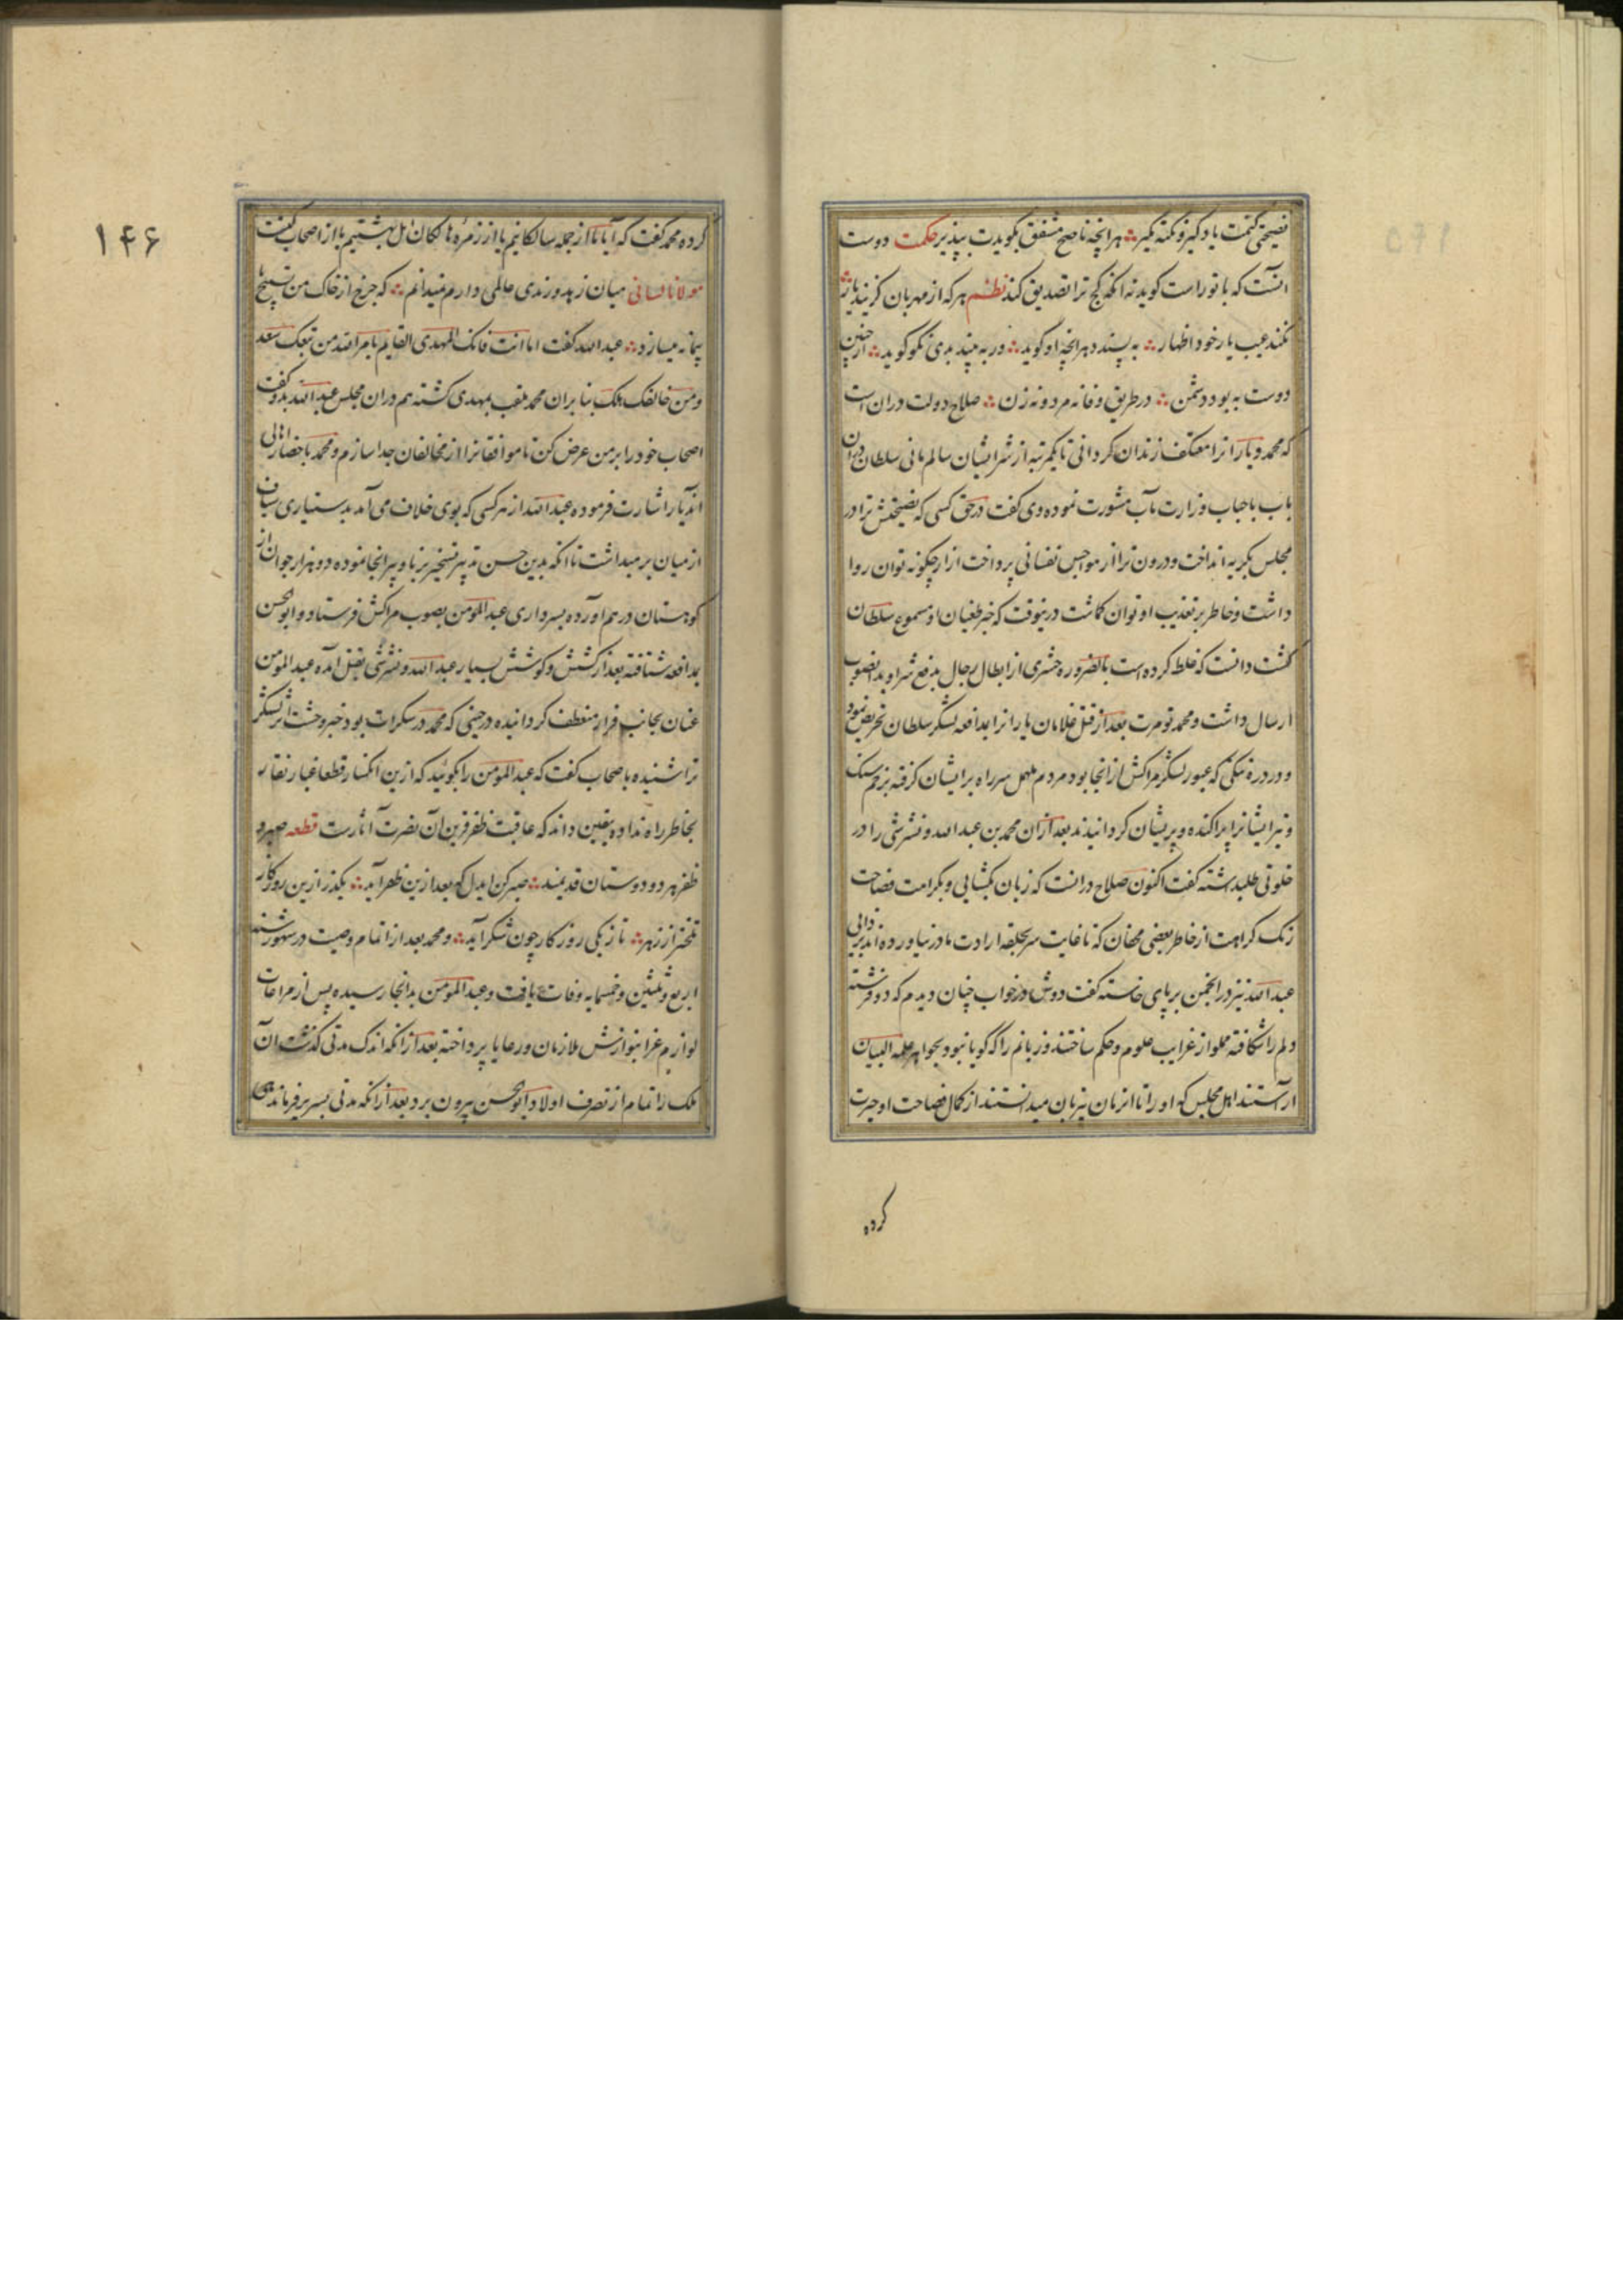 نصیحتی کنمت یاد گیر و نکته مگیر هرانچه ناصح مشفق بگویدت بپذیر حکمت دوست
انست که با تو راست کوید نه انکه کج ترا تصدیق کند نظم هر که از مهربان کزیند یار
نکند عیب یار خود اظهار به پسندد هرانچه او کوید ور به بیند بدی نکو کوید از چنین
دوست به بود دشمن در طریق وفا نه مرد و نه زن صلاح دولت دران است
که محمد و یارانرا معتکف زندان کردانی تا یکمرتبه از شر ایشان سالم مانی سلطان دران
باب با جناب وزارت مآب مشورت نموده وی کفت در حق کسی که نصیحتش ترا در
مجلس بکریه انداخت و درون ترا از هواجس نفسانی پرداخت ازار چکونه توان روا
داشت و خاطر بر تعذیب او توان کماشت درینوقت که خبر طغیان او مسموع سلطان
کشت دانست که غلط کرده است بالضروره حشری از ابطال رجال بدفع شر او بدانصوب
ارسال داشت و محمد تومرت بعد از قتل غلامان یارانرا بمدافعه لشکر سلطان تحریض نمود
و در دره تنکی که عبور لشکر مراکش از انجا بود مردم سر راه بر ایشان کرفته بزخم سنک
و تیر ایشانرا پراکنده و پریشان کردانیدند بعد ازان محمد بن عبد الله ونشرشی را در
خلوتی طلبداشته کفت اکنون صلاح درانست که زبان بکشایی و بکرامت فصاحت
زنک کراهت از خاطر بعضی که تا غایت سر بحلقه ارادت ما در نیاورده اند بزدایی
عبد الله نیز در انجمن بر پای خاسته کفت دوش در خواب چنان دیدم که دو فرشته
دلم را شکافته مملو از غرایب علوم و حکم ساختند و زبانم را که کویا نبود بجواهر علمه البیان
اراستند اهل مجلس که او را تا انزمان بیزبان میدانستند از کمال فصاحت او حیرت
کرده
۱۴۶
کرده محمد کفت که آیا ما از جمله سالکانیم یا از زمره هالکان اهل بهشتیم یا از اصحاب
مولانا لسانی میان زهد و رندی عالمی دارم نمیدانم که چرخ از خاک من تسبیح یا
پیمانه میسازد عبد الله کفت اما انت فانک المهدی القایم بامر الله من تبعک سعد
و من خالفک هلک بنابران محمد ملقب بمهدی کشته هم دران مجلس عبد الله بدو کفت
اصحاب خود را بر من عرض کن تا موافقانرا از مخالفان جدا سازم و محمد باحضار اهالی
اندیار اشارت فرموده عبد الله از هر کسی که بوی خلاف می آمد بدستیاری سیاف
از میان بر میداشت تا انکه بدین حسن تدبیر تسخیر برنا و پیر انجا نموده دو هزار جوان از
کوهستان در هم اورده بسرداری عبد المومن بصوب مراکش فرستاد و ابو الحسن
بمدافعه شتافته بعد از کشش و کوشش بسیار عبد الله ونشرشی بقتل امده عبد المومن
عنان بجانب فرار منعطف کردانیده در حینی که محمد در سکرات بود خبر وحشت اثر لشکر
را شنیده باصحاب کفت که عبد المومن را بکوئید که ازین انکسار قطعا غبار نقار
بخاطر راه نداده یقین داند که عاقبت ظفر قرین آن نصرت آثارست قطعه صبر و
ظفر هر دو دوستان قدیمند صبر کن ایدل که بعد ازین ظفر آید بکذرد ازین روزکار
تلختر از زهر باز یکی روزکار چون شکر آید و محمد بعد از اتمام وصیت در شهور سنه
اربع و ثلثین و خمسمایه وفات یافت و عبد المومن بدانجا رسیده پس از مراعات
لوازم عزا بنوازش ملازمان و رعایا پرداخته بعد از انکه اندک مدتی کذشت ان
ملک را تمام از تصرف اولاد ابو الحسن بیرون برد بعد از انکه مدتی بسریر فرماندهی